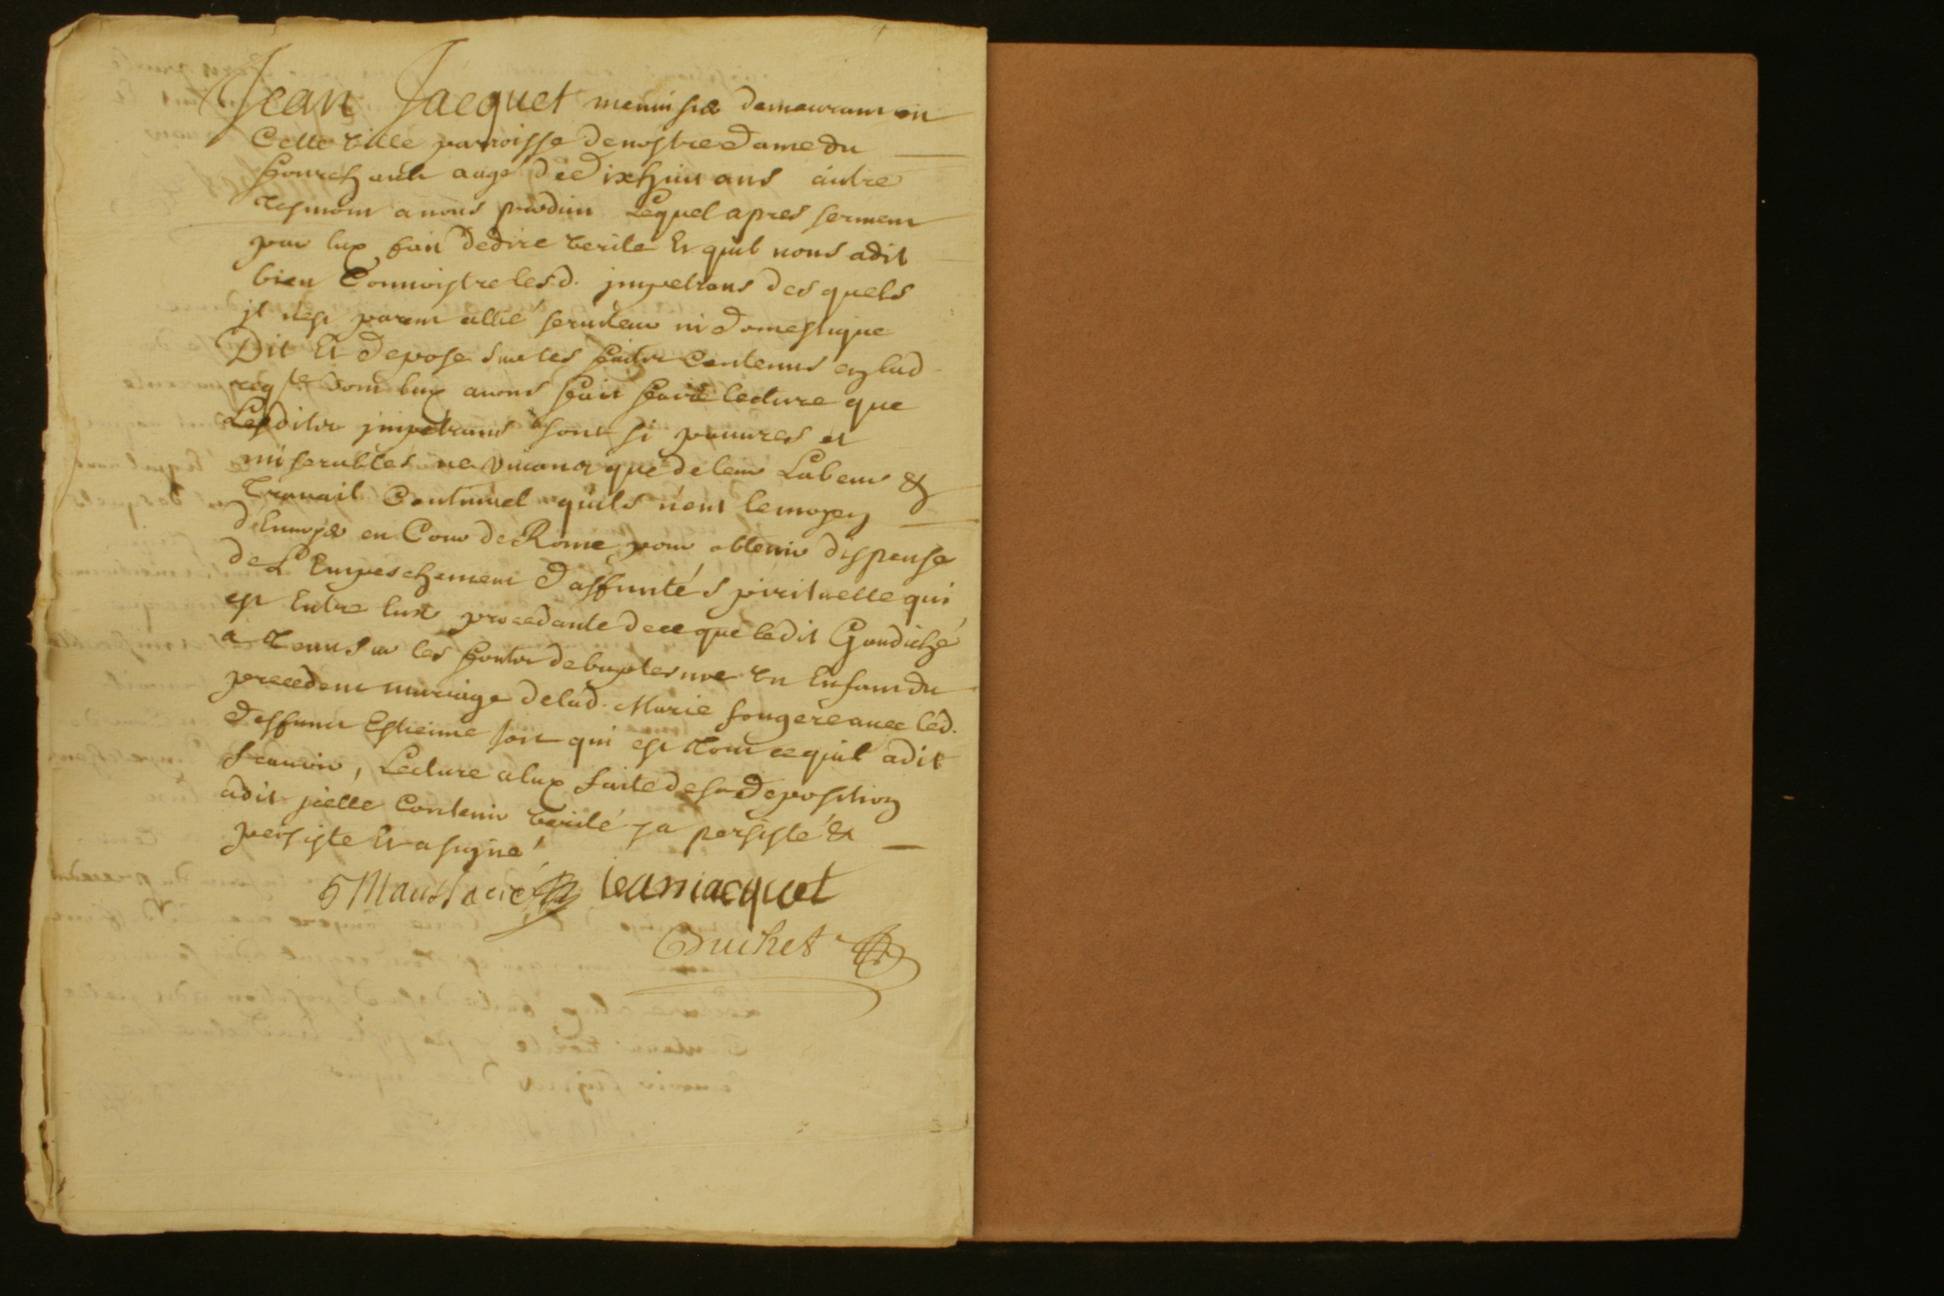 Jean Jacquet menuisier demeurant en
Cette ville parroisse de nostre Dame du
fourchault aagé de Dixhuit ans autre
tesmoin a nous produit Lequel apres serment
par luy fait de dire verité Et quil nous a dit
bien Connoistre lesd. impetrans des quels
il n'est parent allié serviteur ni domestique
Dit Et depose sur les faits Contenus en lad
reqte dont luy avons fait faire lecture que
Lesditor impetrans sont si pauures et
miserables ne vivant que de leur Labeur &
Travail Continuel quils n'ont le moyen
d'Envoyer en Cour de Rome pour obtenir dispense
de L'Empeschement d'affinité spirituelle qui
est Entre Eux procedante de ce que ledit Gaudiché
a tenu sur les fonts de baptesme Un Enfant du
precedent mariage de lad. Marie fougere avec led.
deffunct Estienne qui est tout ce quil a dit
scauoir, Lecture a luy faite de sa deposition
a dit jcelle Contenir verité y a persisté &
persiste Et a signé
jean jacquet
Duchet